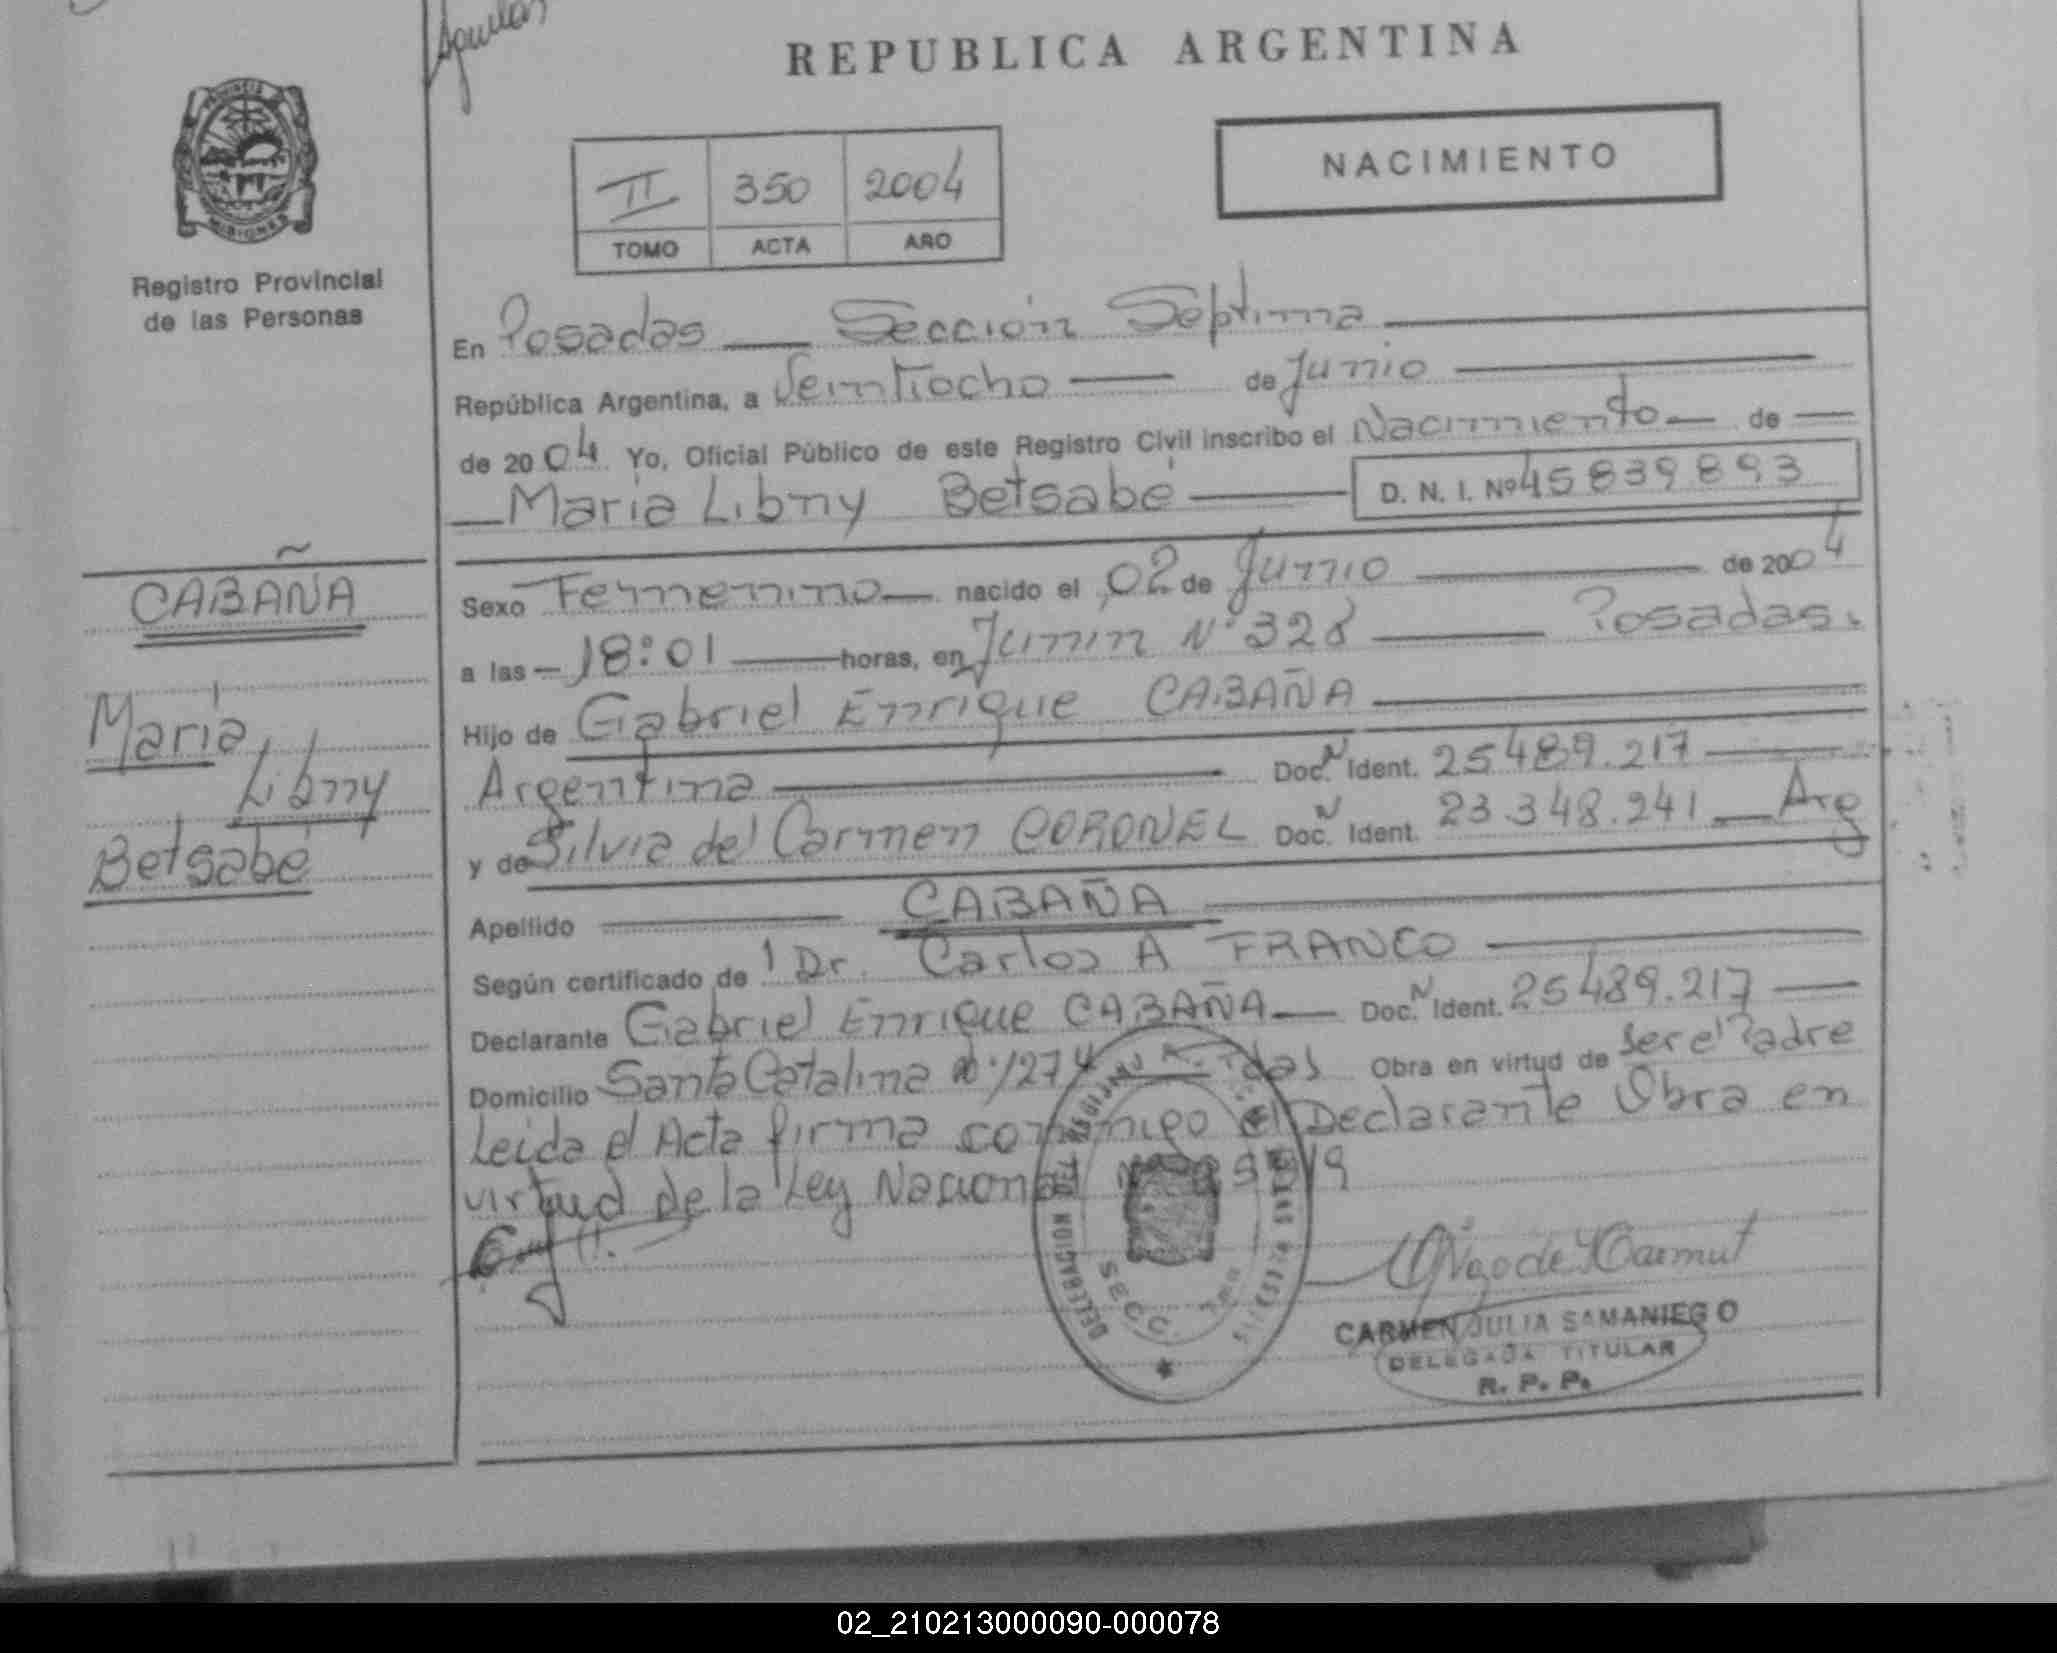 Aguilar
REPUBLICA ARGENTINA
PROVINCIA DE
MISIONES
Registro Provincial
de las Personas
NACIMIENTO
II 350 2004
TOMO ACTA AÑO
En Posadas — Sección Septima —
República Argentina, a Veintiocho — de Junio —
de 2004 Yo, Oficial Público de este Registro Civil inscribo el Nacimiento — de —
— Maria Libny Betsabé — D. N. I. Nº 45839893
CABAÑA
María
Libny
Betsabé
Sexo Femenino — nacido el 02 de Junio — de 2004
a las — 18:01 — horas, en Junin Nº 328 — Posadas.
Hijo de Gabriel Enrique CABAÑA —
Argentina — Doc. N Ident. 25489.217 —
y de Silvia del Carmen CORONEL Doc. N Ident. 23.348.241 — Arg
Apellido — CABAÑA —
Según certificado de Dr. Carlos A FRANCO —
Declarante Gabriel Enrique CABAÑA — Doc. N Ident. 25489.217 —
Domicilio Santa Catalina Nº 1274 — Pdas Obra en virtud de Ser el Padre
Leida el Acta firma conmigo el Declarante Obra en
virtud de la Ley Nacional
DELEGACION
SECC. 7ma
CARMEN JULIA SAMANIEGO
DELEGADA TITULAR
R. P. P.
02_210213000090-000078